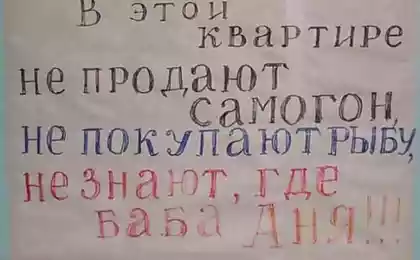 В этой
квартире
не продают
самогон,
не покупают рыбу,
не знают, где
баба Аня!!!